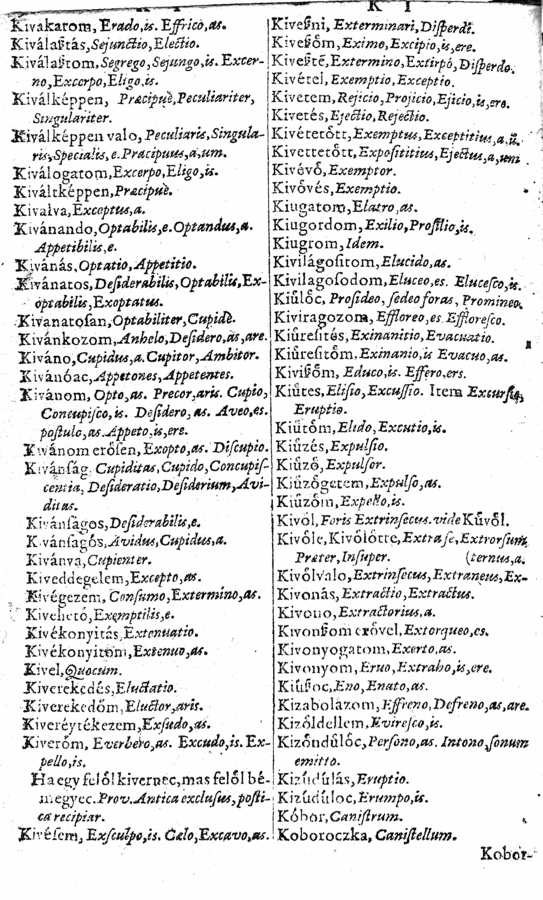 K I
Kivakarom, Erado,is. Effrico,as.
Kiválaſtás, Sejunctio, Electio.
Kiválaſtom, Segrego, Sejungo,is. Excer-
no, Excerpo, Eligo,is.
Kiválképpen, Præcipuè, Peculiariter,
Singulariter.
Kiválképpen valo, Peculiaris, Singula-
ris, Specialis, e. Præcipuus, a, um.
Kiválogatom, Excerpo, Eligo,is.
Kiváltképpen, Præcipuè.
Kivalva, Exceptus,a.
Kivánando, Optabilis,e. Optandus,a.
Appetibilis,e.
Kivánás, Optatio, Appetitio.
Kivánatos, Deſiderabilis, Optabilis, Ex-
optabilis, Exoptatus.
Kivanatoſan, Optabiliter, Cupidè.
Kivánkozom, Anhelo, Deſidero,as,are.
Kiváno, Cupidus,a. Cupitor, Ambitor.
Kivánóac, Appetones, Appetentes.
Kivánom, Opto,as. Precor,aris. Cupio,
Concupiſco,is. Deſidero, as. Aveo,es.
poſtulo,as. Appeto,is,ere.
Kivánom erőſen, Exopto,as. Diſcupio.
Kivánſág, Cupiditas, Cupido, Concupiſ-
centia, Deſideratio, Deſiderium, Avi-
ditas.
Kivánſagos, Deſiderabilis,e.
Kivánſagós, Avidus, Cupidus,a.
Kivánva, Cupienter.
Kiveddegelem, Excepto,as.
Kivégezem, Conſumo, Extermino,as.
Kivehető, Exemptilis,e.
Kivékonyitás, Extenuatio.
Kivékonyitom, Extenuo,as.
Kivel, Quocum.
Kiverekedés, Eluctatio.
Kiverekedőm, Eluctor,aris.
Kiveréytékezem, Exſudo,as.
Kiveröm, Everbero,as. Excudo,is. Ex-
pello,is.
Ha egy felől kivernec, mas felől bé-
megyec. Prov. Antica excluſus, poſti-
ca recipiar.
Kivéſem, Exſculpo,is. Cælo, Excavo,as.
Kiveſni, Exterminari, Diſperdi.
Kiveſöm, Eximo, Excipio,is,ere.
Kiveſté, Extermino, Extirpo, Diſperdo.
Kivétel, Exemptio, Exceptio.
Kivetem, Rejicio, Projicio, Ejicio,is,ere.
Kivetés, Ejectio, Rejectio.
Kivétetött, Exemptus, Exceptitius,a,ū.
Kivettetött, Expoſititius, Ejectus,a,um
Kivévő, Exemptor.
Kivövés, Exemptio.
Kiugatom, Elatro,as.
Kiugordom, Exilio, Proſilio,is.
Kiugrom, Idem.
Kivilágoſitom, Elucido,as.
Kivilagoſodom, Eluceo,es. Eluceſco,is.
Kiűlőc, Proſideo, ſedeo foras, Promineo.
Kiviragozom, Effloreo,es. Effloreſco.
Kiűreſités, Exinanitio, Evacuatio.
Kiűreſitőm, Exinanio,is Evacuo,as.
Kiviſöm, Educo,is. Effero,ers.
Kiűtes, Eliſio, Excuſſio. Item Excurſio,
Eruptio.
Kiűtőm, Elido, Excutio,is.
Kiűzés, Expulſio.
Kiűző, Expulſor.
Kiűzőgetem, Expulſo,as.
Kiűzőm, Expello,is.
Kivől, Foris Extrinſecus. vide Kűvől.
Kivőle, Kivőlőtte, Extra ſe, Extrorſum,
Præter, Inſuper. (ternus,a.
Kivőlvalo, Extrinſecus, Extraneus, Ex-
Kivonás, Extractio, Extractus.
Kivono, Extractorius,a.
Kivonſom erővel, Extorqueo,es.
Kivonyogatom, Exerto,as.
Kivonyom, Eruo, Extraho,is,ere.
Kiűſoc, Eno, Enato,as.
Kizabolázom, Effreno, Defreno,as,are.
Kizőldellem, Evireſco,is.
Kizőndűlőc, Perſono,as. Intono, ſonum
emitto.
Kizúdulás, Eruptio.
Kizúdúloc, Erumpo,is.
Kóbor, Caniſtrum.
Koboroczka, Caniſtellum.
Kobor-